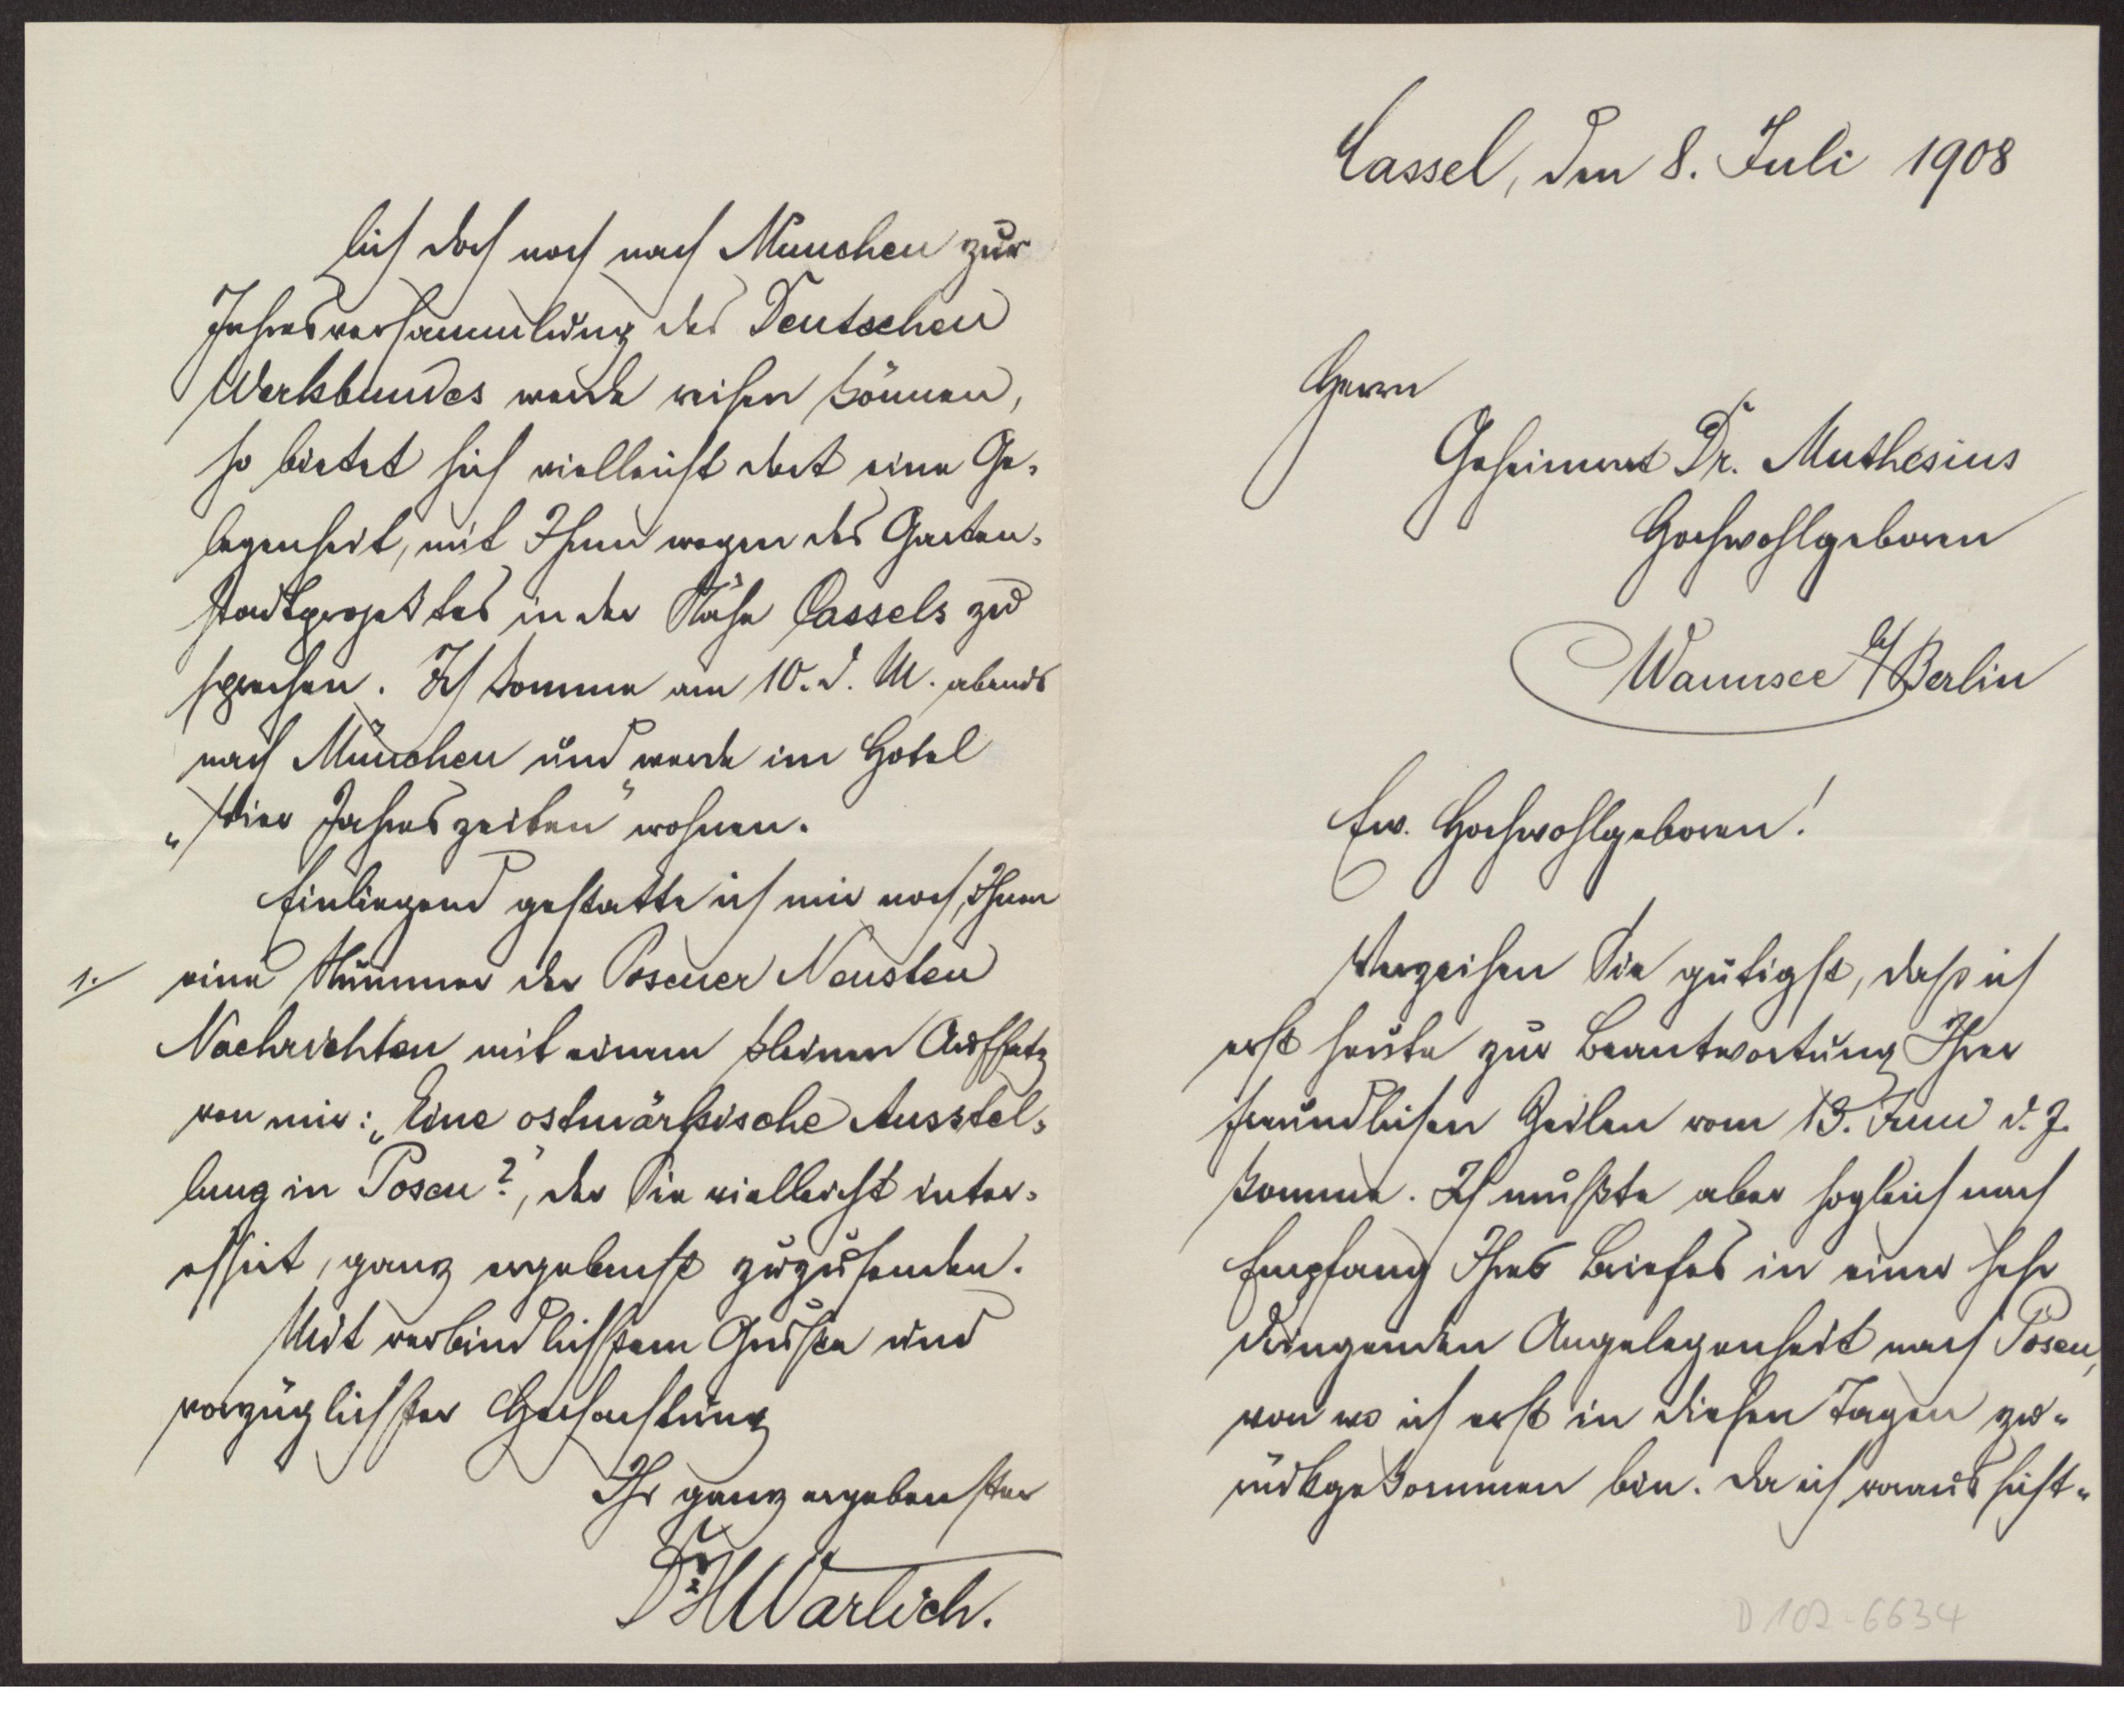 Cassel, den 8. Juli 1908
Herrn
Geheimrat Dr. Muthesius
Hochwohlgeboren
Wannsee b/Berlin
Ew. Hochwohlgeboren!
Verzeihen Sie gütigst, daß ich
erst heute zur Beantwortung Ihrer
freundlichen Zeilen vom 13. Juni d. J.
komme. Ich mußte aber sogleich nach
Empfang Ihres Briefes in einer sehr
dringenden Angelegenheit nach Posen,
von wo ich erst in diesen Tagen zu-
rückgekommen bin. Da ich voraussicht-
D 102-6634
lich doch noch nach München zur
Jahresversammlung des Deutschen
Werkbundes werde reisen können,
so bietet sich vielleicht dort eine Ge-
legenheit, mit Ihnen wegen des Garten-
stadtprojektes in der Nähe Cassels zu
sprechen. Ich komme am 10. d. M. abends
nach München und werde im Hotel
„Vier Jahreszeiten" wohnen.
Einliegend gestatte ich mir noch, Ihnen
1. eine Nummer der Posener Neusten
Nachrichten mit einem kleinen Aufsatz
von mir: „Eine ostmärkische Ausstel-
lung in Posen?", der Sie vielleicht inter-
essirt, ganz ergebenst zuzusenden.
Mit verbindlichstem Gruße und
vorzüglichster Hochachtung
Ihr ganz ergebenster
Dr. H Warlich.